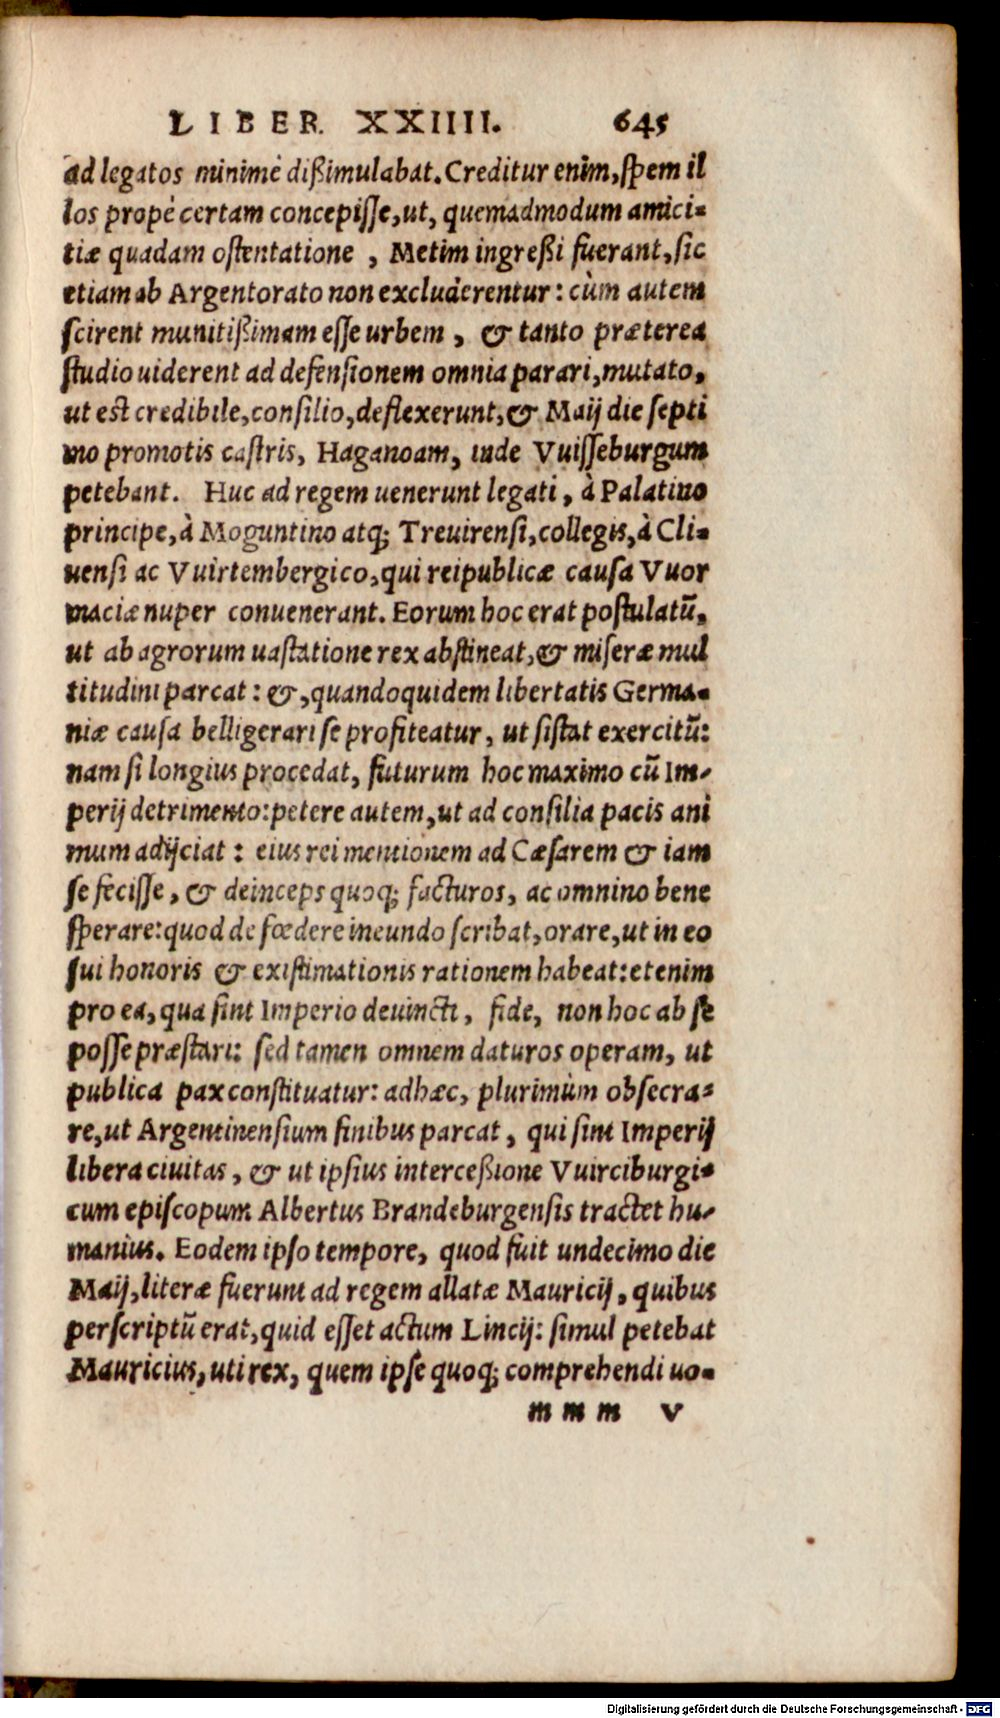 LIBER XXIIII. 645
ad legatos minimè dißimulabat. Creditur enim, ſpem il
los propè certam concepiſſe, ut, quemadmodum amici-
tiæ quadam oſtentatione , Metim ingreßi fuerant, ſic
etiam ab Argentorato non excluderentur: cùm autem
ſcirent munitißimam eſſe urbem , & tanto præterea
ſtudio uiderent ad defenſionem omnia parari, mutato,
ut eſt credibile, conſilio, deflexerunt, & Maij die ſepti
mo promotis caſtris, Haganoam, inde Vuiſſeburgum
petebant. Huc ad regem uenerunt legati, à Palatino
principe, à Moguntino atq; Treuirenſi, collegis, à Cli-
uenſi ac Vuirtembergico, qui reipublicæ cauſa Vuor
maciæ nuper conuenerant. Eorum hoc erat poſtulatū,
ut ab agrorum uaſtatione rex abſtineat, & miſeræ mul
titudini parcat: &, quandoquidem libertatis Germa-
niæ cauſa belligerari ſe profiteatur, ut ſiſtat exercitū:
nam ſi longius procedat, futurum hoc maximo cū Im-
perij detrimento: petere autem, ut ad conſilia pacis ani
mum adijciat: eius rei mentionem ad Cæſarem & iam
ſe feciſſe, & deinceps quoq; facturos, ac omnino bene
ſperare: quod de fœdere ineundo ſcribat, orare, ut in eo
ſui honoris & exiſtimationis rationem habeat: etenim
pro ea, qua ſint Imperio deuincti, fide, non hoc ab ſe
poſſe præſtari: ſed tamen omnem daturos operam, ut
publica pax conſtituatur: adhæc, plurimùm obſecra-
re, ut Argentinenſium finibus parcat, qui ſint Imperij
libera ciuitas, & ut ipſius interceßione Vuirciburgi-
cum epiſcopum Albertus Brandeburgenſis tractet hu-
manius. Eodem ipſo tempore, quod fuit undecimo die
Maij, literæ fuerunt ad regem allatæ Mauricij, quibus
perſcriptū erat, quid eſſet actum Lincij: ſimul petebat
Mauricius, uti rex, quem ipſe quoq; comprehendi uo-
m m m v
Digitalisierung gefördert durch die Deutsche Forschungsgemeinschaft - DFG